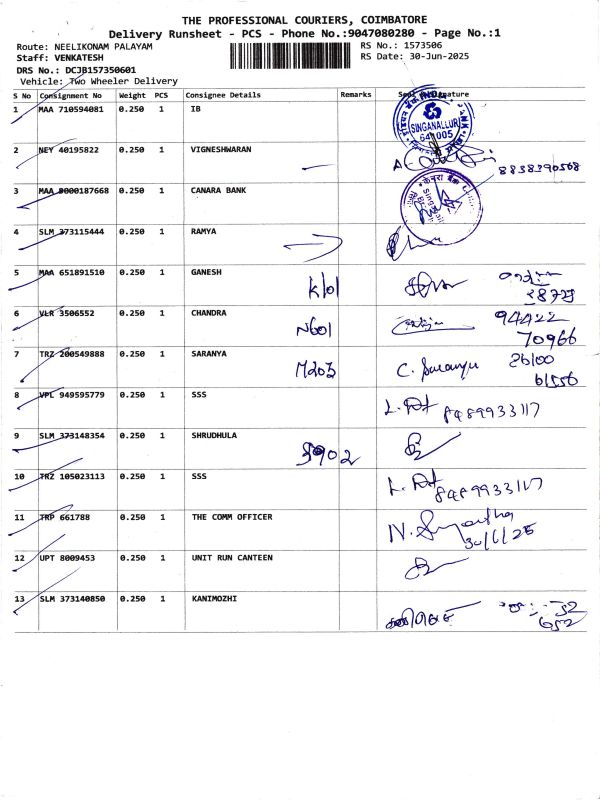 THE PROFESSIONAL COURIERS, COIMBATORE
Delivery Runsheet - PCS - Phone No.:9047080280 - Page No.:1
Route: NEELIKONAM PALAYAM
Staff: VENKATESH
DRS No.: DCJB157350601
Vehicle: Two Wheeler Delivery
RS No.: 1573506
RS Date: 30-Jun-2025
S No Consignment No Weight PCS Consignee Details Remarks
1 MAA 710594081 0.250 1 IB
SINGANALLUR
641005
2 NEY 40195822 0.250 1 VIGNESHWARAN
8838290568
3 MAA 9000187668 0.250 1 CANARA BANK
4 SLM 373115444 0.250 1 RAMYA
5 MAA 651891510 0.250 1 GANESH K101
6 VLR 3506552 0.250 1 CHANDRA N601 94422
70966
7 TRZ 200549888 0.250 1 SARANYA M203 C. Saranya
8 VPL 949595779 0.250 1 SSS 8489933117
9 SLM 373148354 0.250 1 SHRUDHULA 3902
10 TRZ 105023113 0.250 1 SSS 8489933117
11 TRP 661788 0.250 1 THE COMM OFFICER
30/6/25
12 UPT 8009453 0.250 1 UNIT RUN CANTEEN
13 SLM 373140850 0.250 1 KANIMOZHI
652